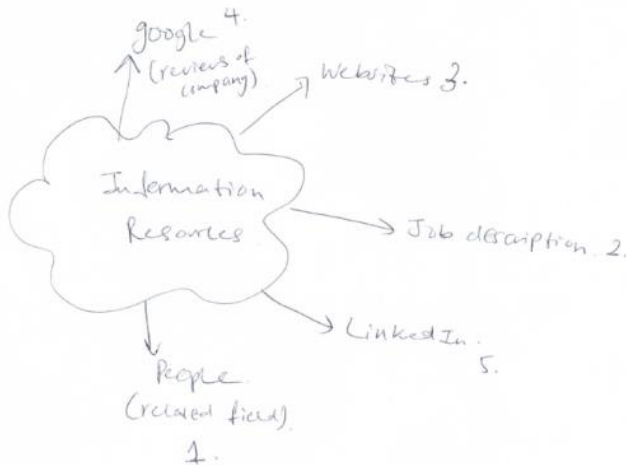 google 4.
(reviews of
company)
Websites 3.
Information
Resources
Job description. 2.
LinkedIn.
5.
People
(related field)
1.